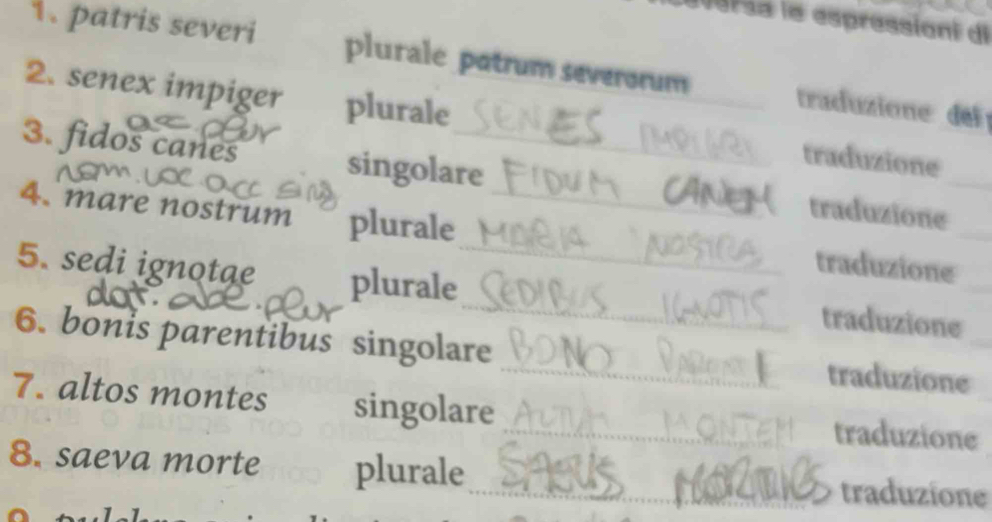 le espressioni di
1. patris severi plurale patrum severorum traduzione
2. senex impiger plurale SENES IMPIGRI traduzione
acc. plur
3. fidos canes singolare FIDUM CANEM traduzione
nom. voc acc sing
4. mare nostrum plurale MARIA NOSTRA traduzione
5. sedi ignotae plurale SEDIBUS IGNOTIS traduzione
dat. abl. plur
6. bonis parentibus singolare BONO traduzione
7. altos montes singolare ALTUM MONTEM traduzione
8. saeva morte plurale traduzione